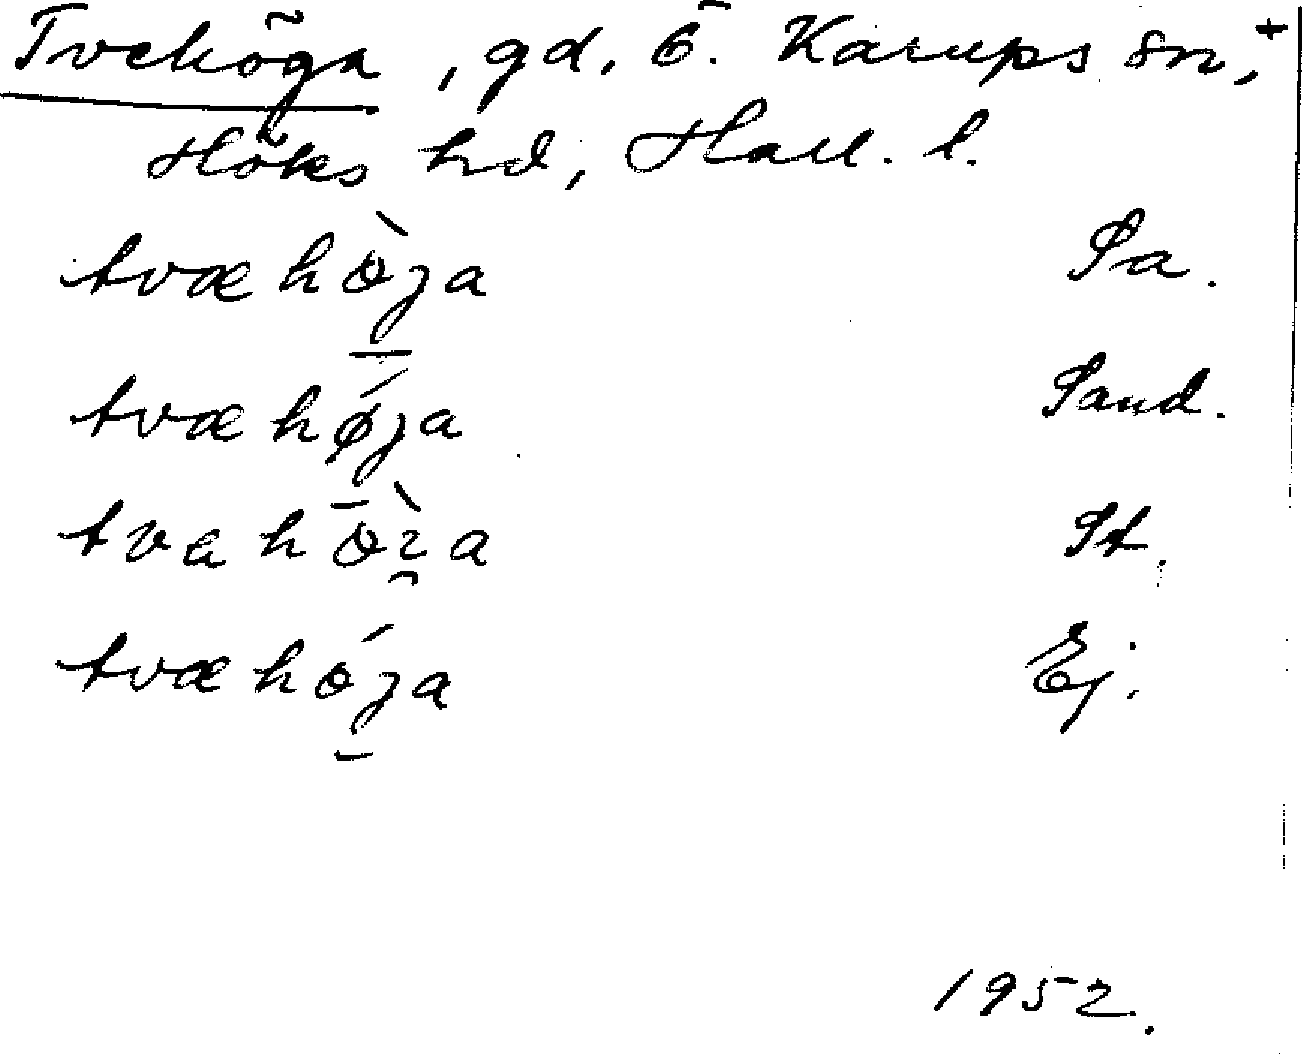 Tvehöga, gd, Ö. Karups sn, +
Höks hd, Hall. l.
tvæhö̀ȷa Sa.
tvæhǿȷa Sand.
tvahö̀ꝛa St.
tvæhóȷa Ej.
1952.